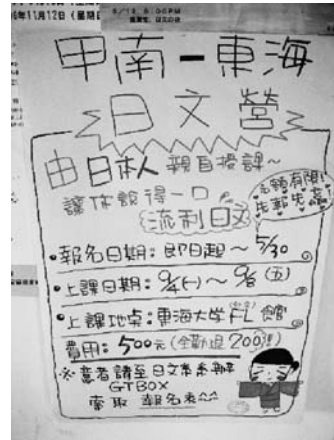 6年11月12日（星期
5/13, 6:00PM
甲南－東海
日文營
由日本人 親自授課～
讓你說得一口
流利日文
名額有限!
先報先贏
•報名日期：即日起～5/30
•上課日期：9/4(一)～9/8(五)
•上課地點：東海大學FL館
費用：500元(全勤退200!!)
※意者請至日文系系辦
GTBOX
索取 報名表^^